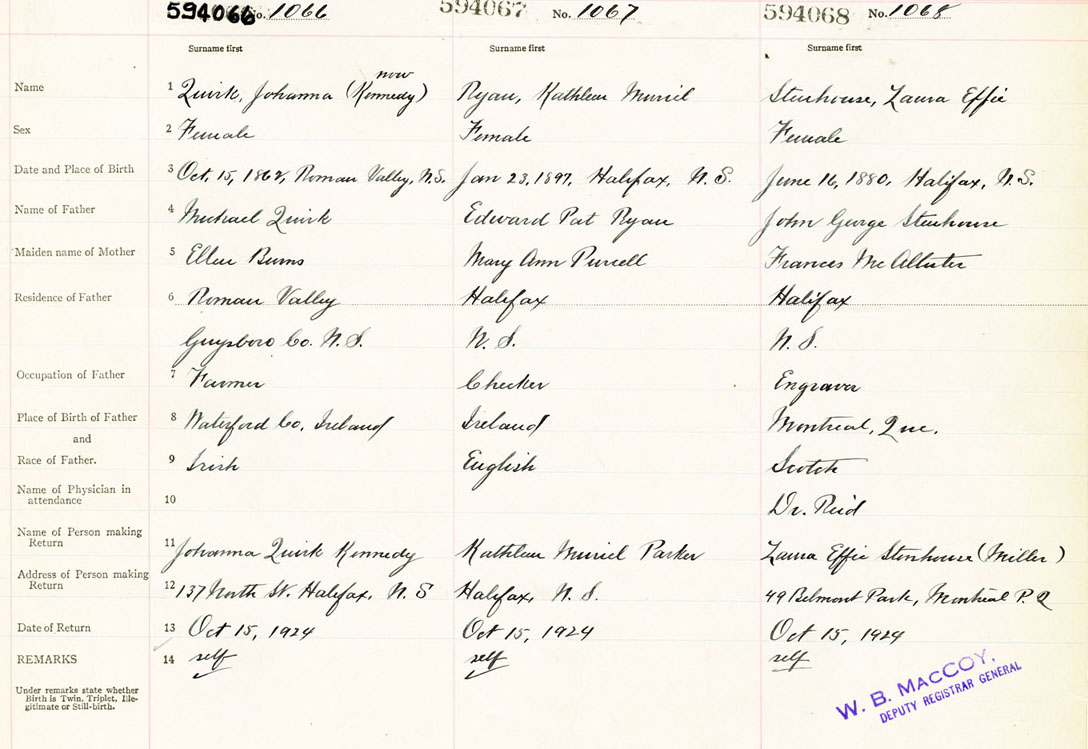 594066 No. 1066
594067 No. 1067
594068 No. 1068
Surname first Surname first Surname first
Name 1 Quirk, Johanna (now Kennedy) Ryan, Kathleen Muriel Stenhouse, Laura Effie
Sex 2 Female Female Female
Date and Place of Birth 3 Oct. 15, 1862, Roman Valley, N.S. Jan 23, 1897, Halifax, N.S. June 16, 1880, Halifax, N.S.
Name of Father 4 Michael Quirk Edward Pat Ryan John George Stenhouse
Maiden name of Mother 5 Ellen Burns Mary Ann Purcell Frances McAllister
Residence of Father 6 Roman Valley Halifax Halifax
Guysboro Co. N.S. N.S. N.S.
Occupation of Father 7 Farmer Checker Engraver
Place of Birth of Father 8 Waterford Co. Ireland Ireland Montreal, Que.
and
Race of Father. 9 Irish English Scotch
Name of Physician in
attendance 10 Dr. Reid
Name of Person making
Return 11 Johanna Quirk Kennedy Kathleen Muriel Parker Laura Effie Stenhouse (Miller)
Address of Person making
Return 12 137 North St. Halifax, N.S Halifax, N.S. 49 Belmont Park, Montreal P.Q
Date of Return 13 Oct 15, 1924 Oct 15, 1924 Oct 15, 1924
REMARKS 14 self self self
Under remarks state whether
Birth is Twin, Triplet, Ille-
gitimate or Still-birth.
W. B. MACCOY,
DEPUTY REGISTRAR GENERAL